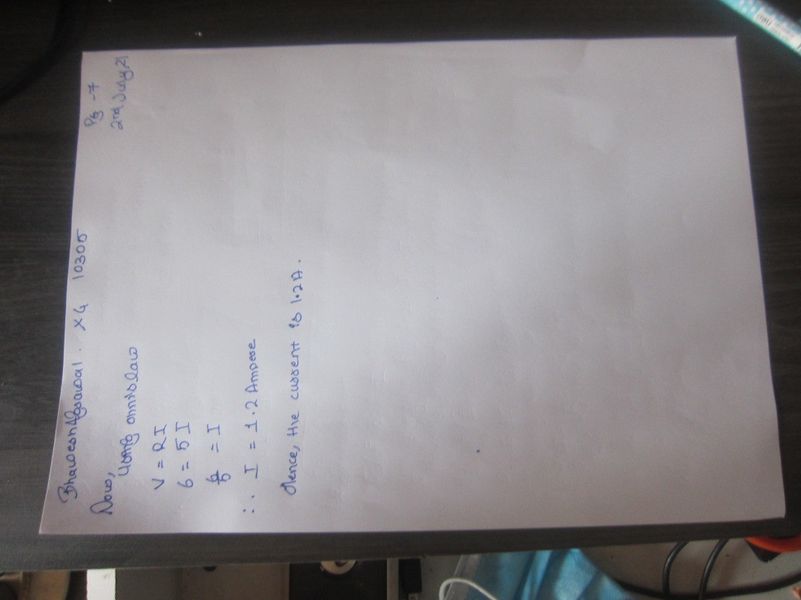 Bhawesh Agrawal. X G 10305
Pg -7
2nd July 21
Now,
Using ohm's law
V = RI
6 = 5 I
6/5 = I
∴ I = 1.2 Ampere
Hence, the current is 1.2A.